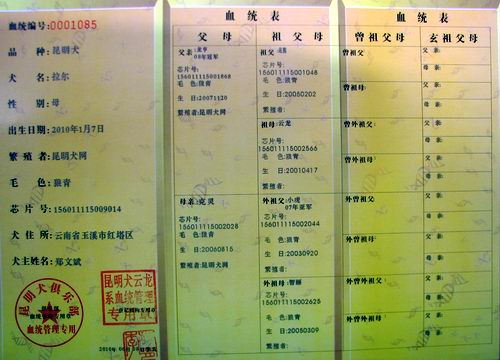 血统编号:0001085
品 种: 昆明犬
犬 名: 拉尔
性 别: 母
出生日期: 2010年1月7日
繁 殖 者: 昆明犬网
毛 色: 狼青
芯 片 号: 156011115009014
犬 住 所: 云南省玉溪市红塔区
犬主姓名: 郑文斌
昆明犬俱乐部
血统管理专用
昆明犬云龙
系血统管理
专用
血统表
父 母
父亲:
08年冠军
芯片号:
156011115001868
毛 色:狼青
生 日:20071120
繁殖者:昆明犬网
母亲:克灵
芯片号:
156011115002028
毛 色:狼青
生 日:20060815
繁殖者:昆明犬网
祖 父 母
祖父:
芯片号:
156011115001048
毛 色:狼青
生 日:20050202
繁殖者:
祖母:云龙
芯片号:
156011115002566
毛 色:狼青
生 日:20010417
繁殖者:
外祖父:小虎
07年亚军
芯片号:
156011115002044
毛 色:狼青
生 日:20030920
繁殖者:
外祖母:智丽
芯片号:
156011115002625
毛 色:狼青
生 日:20050309
繁殖者:
血统表
曾祖父母
曾祖父:
曾祖母:
曾外祖父:
曾外祖母:
外曾祖父:
外曾祖母:
曾外祖父:
外曾外祖母:
玄祖父母
父 亲:
母 亲:
父 亲:
母 亲:
父 亲:
母 亲:
父 亲:
母 亲:
父 亲:
母 亲:
父 亲:
母 亲:
父 亲:
母 亲:
父 亲:
母 亲: